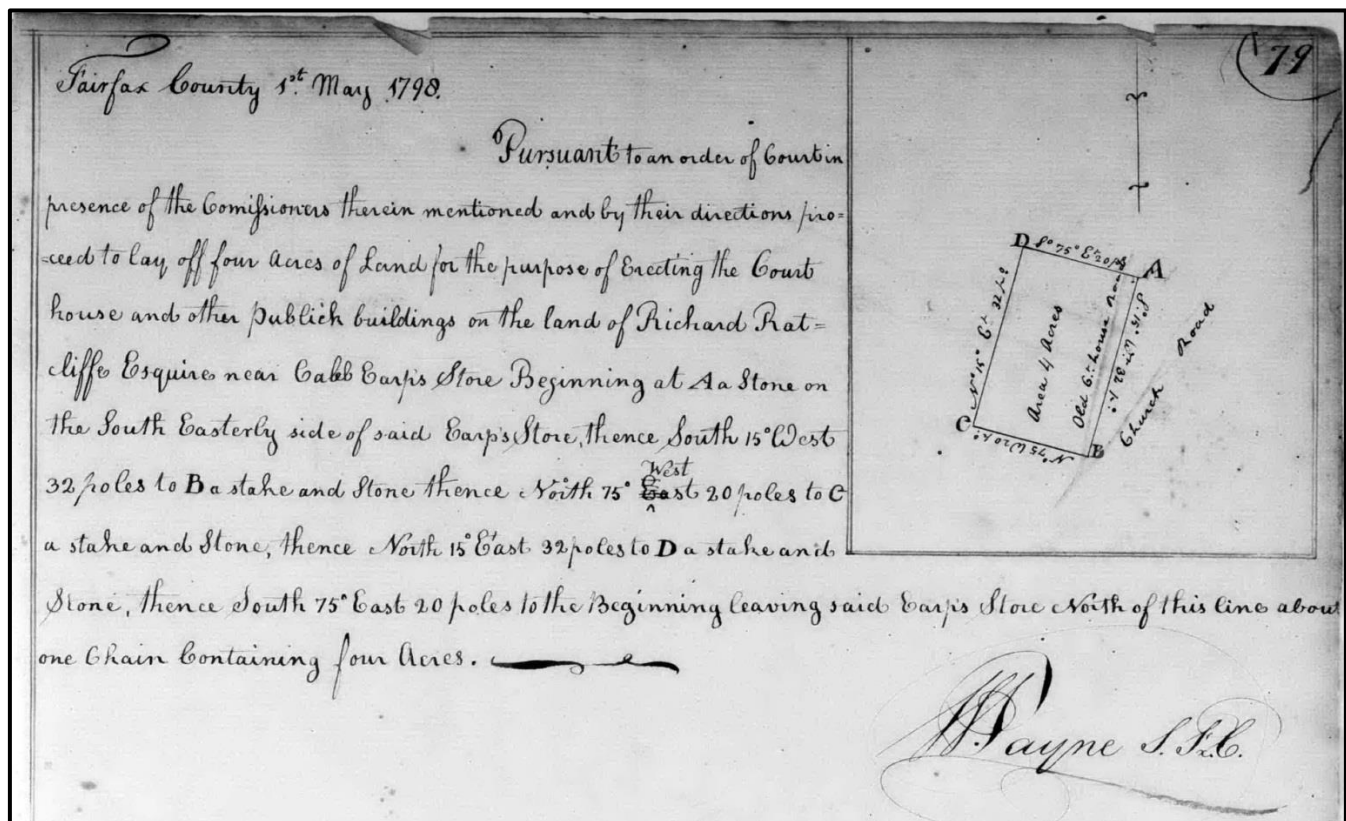 79
Fairfax County 1st. May 1798.
Pursuant to an order of Court in
presence of the Comissioners therein mentioned and by their directions pro=
=ceed to lay off four Acres of Land for the purpose of Erecting the Court
house and other Publick buildings on the land of Richard Rat=
cliffe Esquire near Caleb Earp's Store Beginning at A a Stone on
the South Easterly side of said Earp's Store, thence South 15° West
West
32 poles to B a stake and Stone thence North 75° East 20 poles to C
a stake and Stone, thence North 15° East 32 poles to D a stake and
Stone, thence South 75° East 20 poles to the Beginning leaving said Earp's Store North of this line about
one Chain Containing four Acres.
D
So. 75° Et. 20 po.
A
No. 15° Et. 32 po.
Area 4 Acres
Old Ct. house Road
So. 15° Wt. 32 po.
Church Road
C
No. 75 W 20 po.
B
W Payne S. F. C.